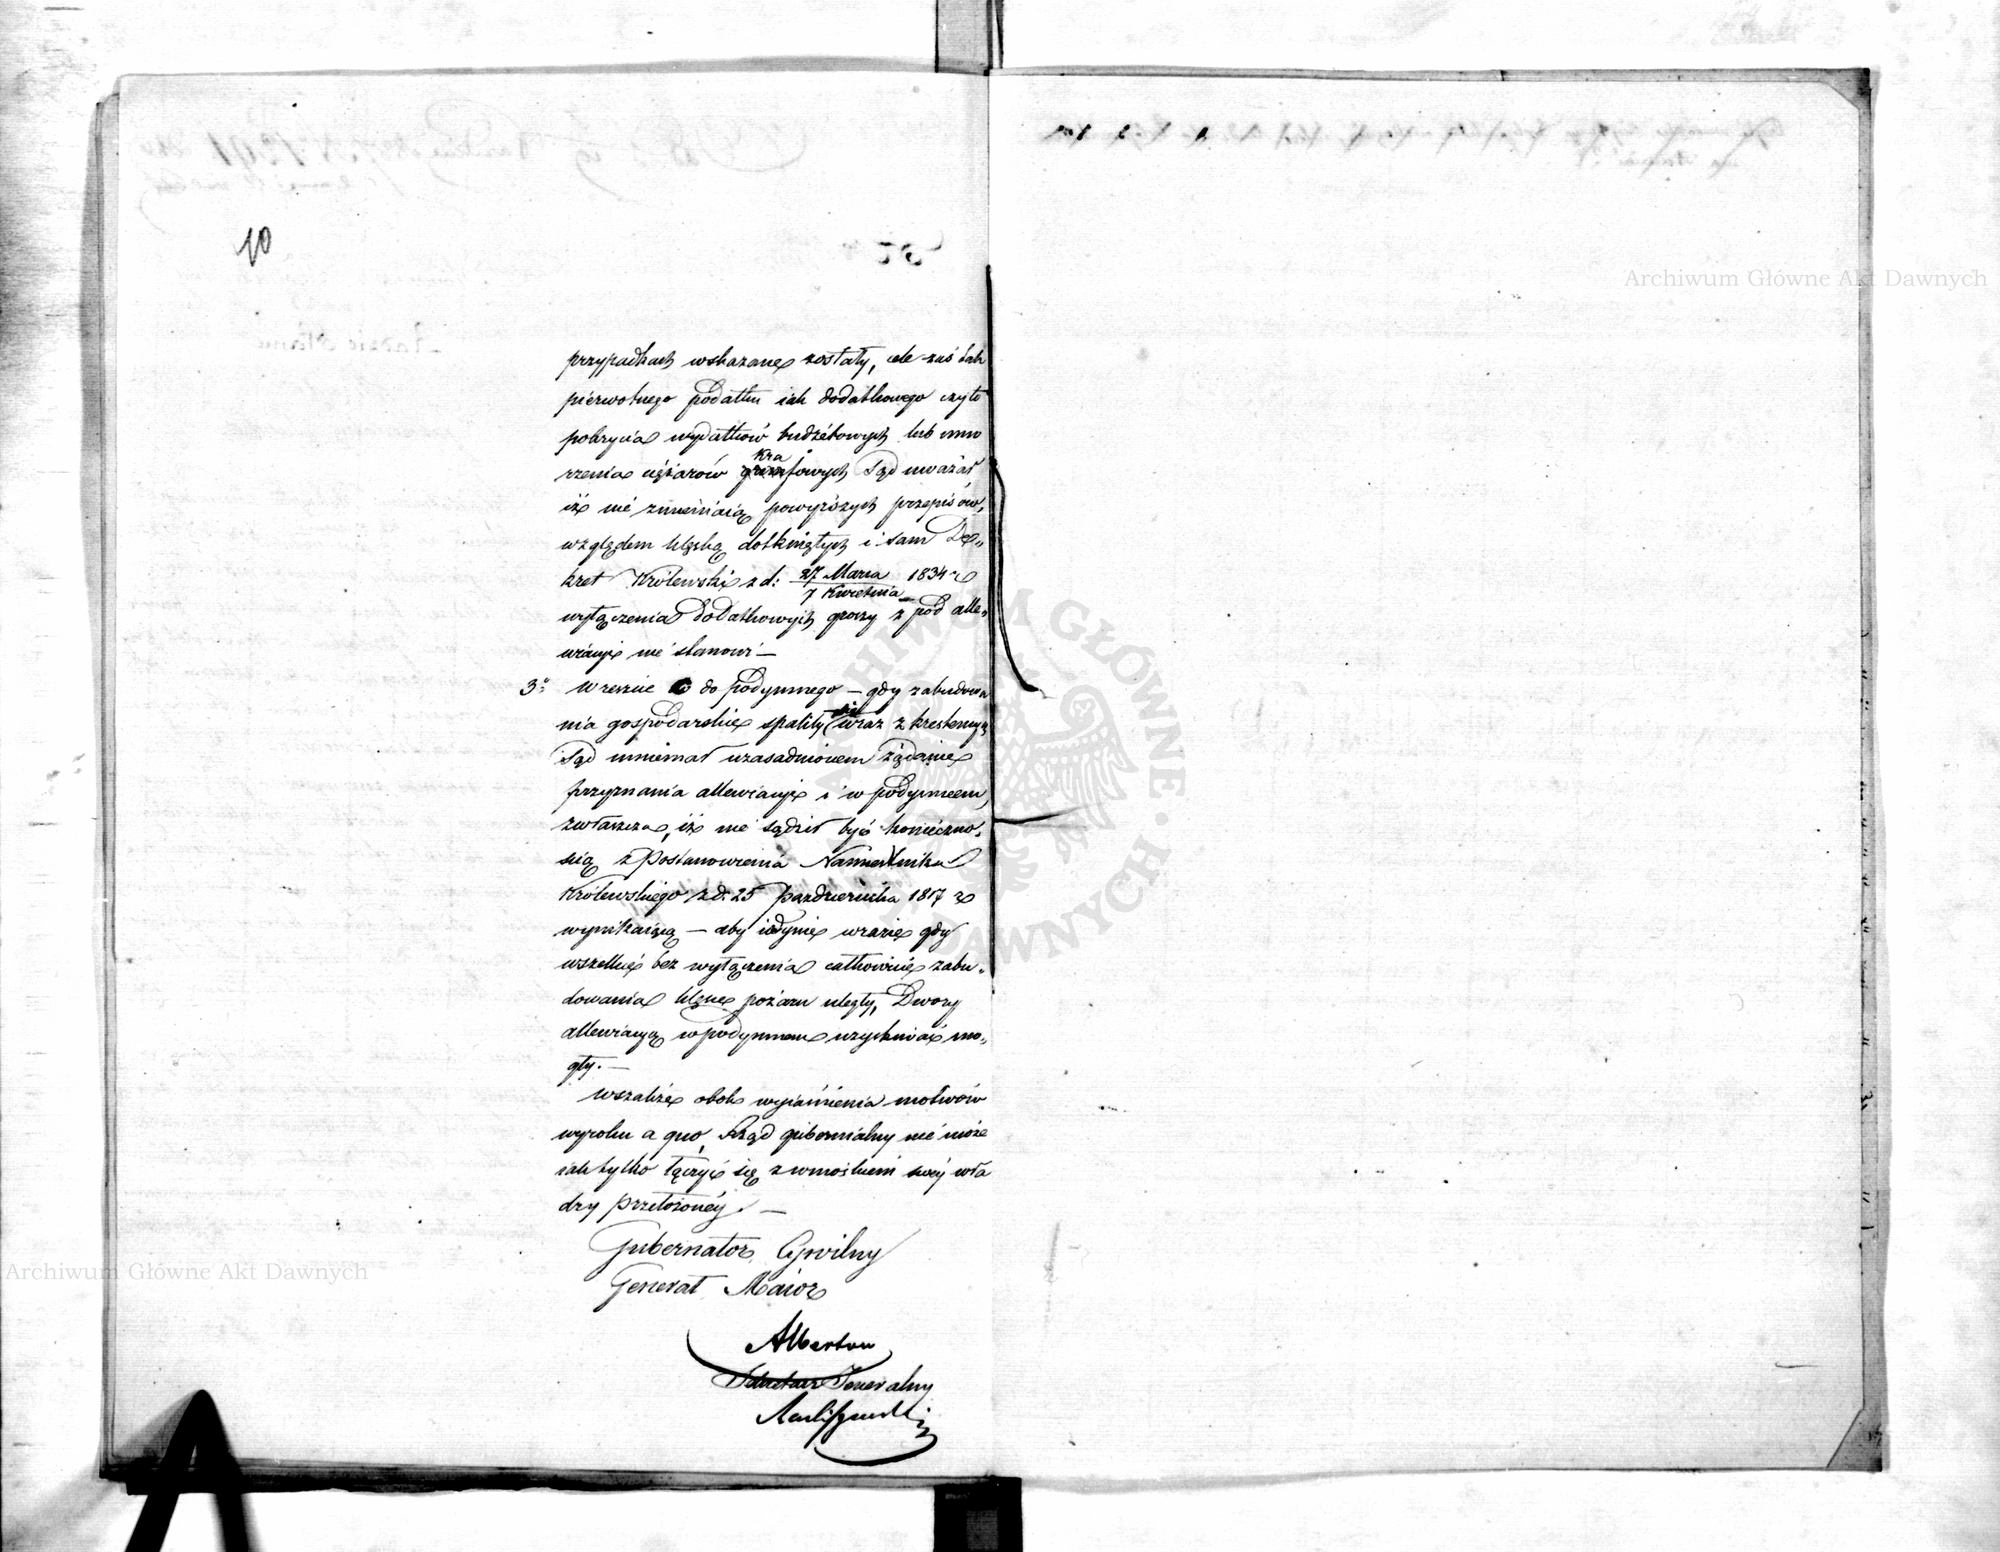 10
przypadkach wskazane zostały, ale zaś tak
pierwotnego podatku iak dodatkowego czyto
pokrycia wydatków budżetowych lub umo
rzenia ciężarów kraiowych Sąd uważał
iż nie zmieniaią powyższych przepisów,
względem klęską dotkniętych i sam De„
kret Królewski z d: 27 Marca / 7 Kwietnia 1834 r
wyłączenia dodatkowych groszy z pod alle„
wiacyi nie stanowi —
3o Wreszcie co do podymnego — gdy zabudowa
nia gospodarskie spaliły się wraz z krestencyą
Sąd mniemał uzasadnionem żądanie
przyznania allewiacyi i w podymnem,
zwłaszcza, iż nie sądził być konieczno„
ścią z Postanowienia Namiestnika
Królewskiego z d. 25 Października 1817 r
wynikaiącą — aby iedynie w razie gdy
wszelkie bez wyłączenia całkowicie zabu„
dowania klęsce pożaru uległy, Dwory
allewiacyą w podymnem uzyskiwać mo„
gły. —
Wszakże obok wyiaśnienia motiwów
wyroku a quo, Rząd gubernialny nie może
iak tylko łączyć się z wnioskiem swéy wła
dzy przełożonéy. —
Gubernator Cywilny
Generał Maior
Albertow
Sekretarz Jeneralny
Archiwum Główne Akt Dawnych
Archiwum Główne Akt Dawnych
ARCHIWUM GŁÓWNE AKT DAWNYCH